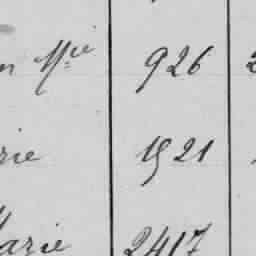 Mie 926
rie 1521
arie 2417